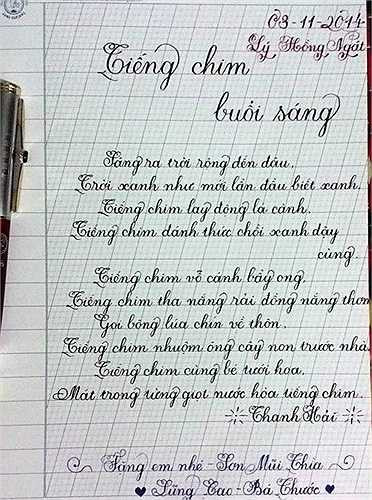 03-11-2014
Lý Hồng Ngát
Tiếng chim
buổi sáng
Sáng ra trời rộng đến đâu.
Trời xanh như mới lần đầu biết xanh.
Tiếng chim lay động lá cành.
Tiếng chim đánh thức chồi xanh dậy
cùng.
Tiếng chim vỗ cánh bầy ong.
Tiếng chim tha nắng rải đồng nắng thơm
Gọi bông lúa chín về thôn.
Tiếng chim nhuộm óng cây non trước nhà
Tiếng chim cùng bé tưới hoa.
Mát trong từng giọt nước hòa tiếng chim.
Thanh Hải
Tặng em nhé - Sơn Mũi Chìa
Lũng Cao - Bá Thước